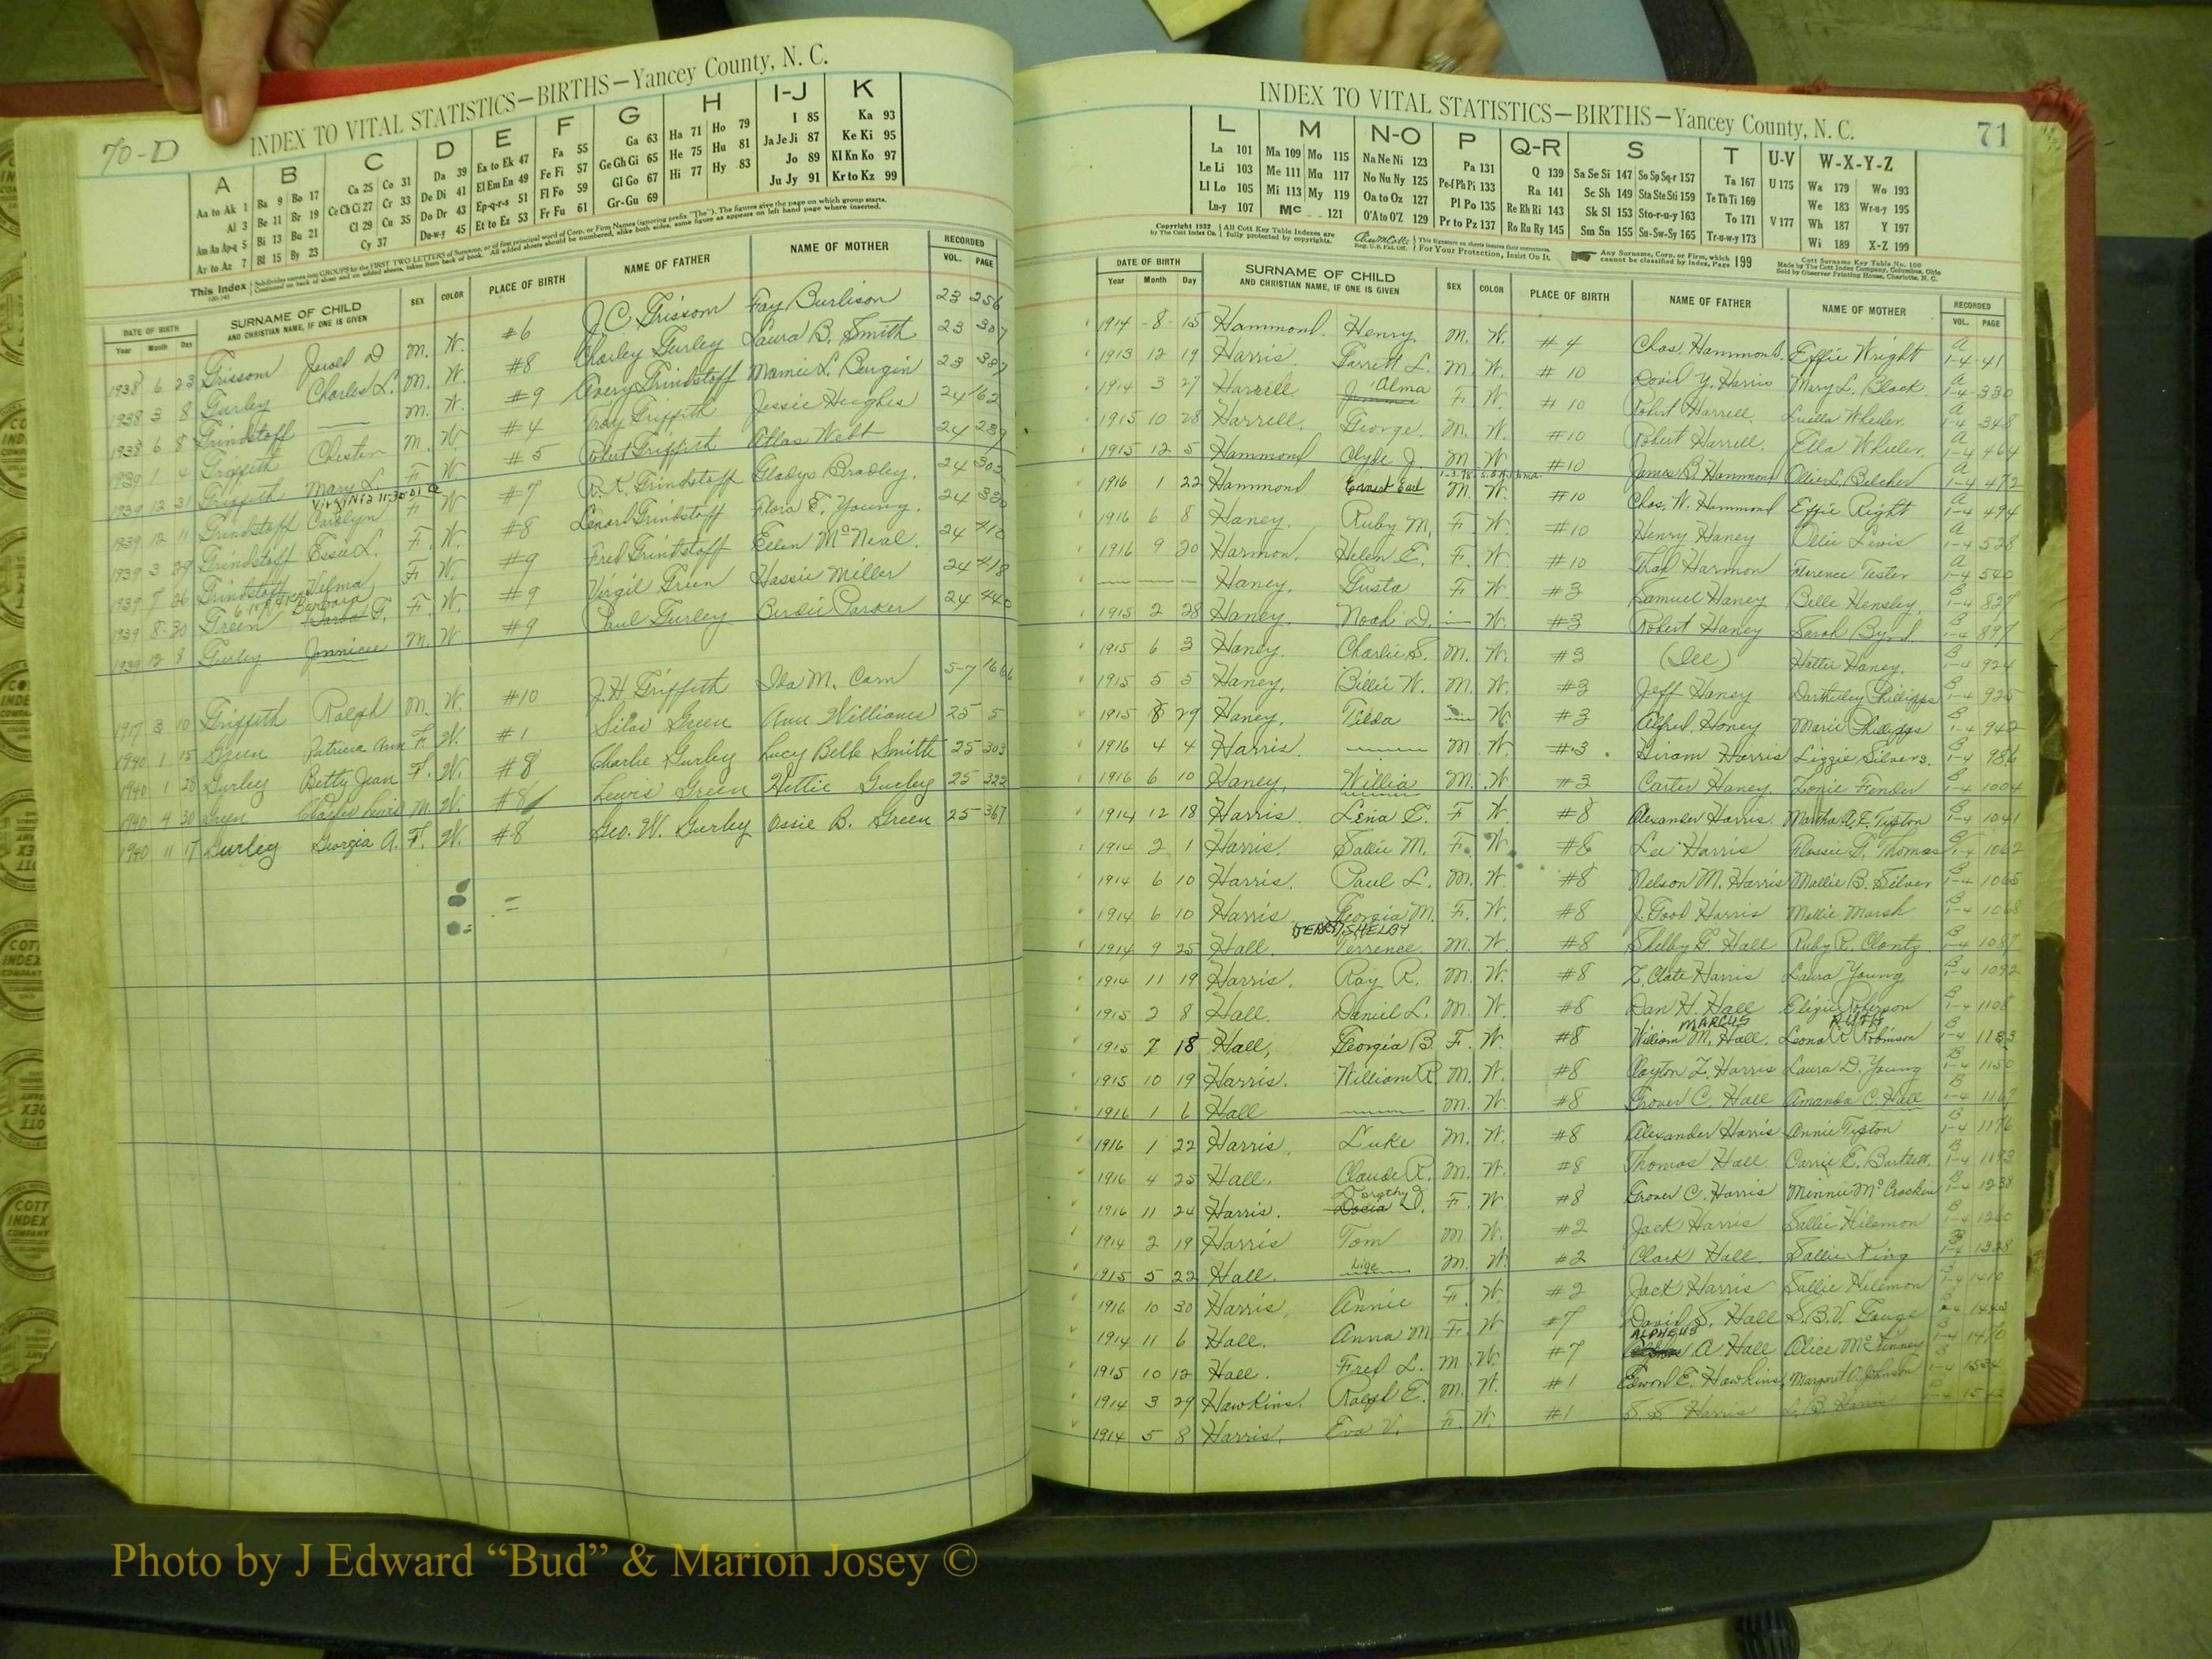 70-D
INDEX TO VITAL STATISTICS—BIRTHS—Yancey County, N. C.
A
Aa to Ak 1
Al 3
Am An Ap-q 5
Ar to Az 7
B
Ba 9 Bo 17
Be 11 Br 19
Bi 13 Bu 21
Bl 15 By 23
C
Ca 25 Co 31
Ce Ch Ci 27 Cr 33
Cl 29 Cu 35
Cy 37
D
Da 39
De Di 41
Do Dr 43
Du-w-y 45
E
Ea to Ek 47
El Em En 49
Ep-q-r-s 51
Et to Ez 53
F
Fa 55
Fe Fi 57
Fl Fo 59
Fr Fu 61
G
Ga 63
Ge Gh Gi 65
Gl Go 67
Gr-Gu 69
H
Ha 71 Ho 79
He 75 Hu 81
Hi 77 Hy 83
I-J
I 85
Ja Je Ji 87
Jo 89
Ju Jy 91
K
Ka 93
Ke Ki 95
Kl Kn Ko 97
Kr to Kz 99
This Index
DATE OF BIRTH
Year Month Day
SURNAME OF CHILD
AND CHRISTIAN NAME, IF ONE IS GIVEN
SEX
COLOR
PLACE OF BIRTH
NAME OF FATHER
NAME OF MOTHER
RECORDED
VOL. PAGE
1938 6 23 Grissom Jewel D M. W. #6 J. C. Grissom Fay Burlison 23 256
1938 3 8 Gurley Charles L. M. W. #8 Charley Gurley Laura B. Smith 23 307
1938 6 8 Grindstoff M. W. #9 Avery Grindstoff Mamie L. Burgin 23 387
1939 1 4 Griffith Chester M. W. #4 Troy Griffith Jessie Hughes 24 162
1939 12 31 Griffith Mary L. F. W. #5 Robert Griffith Atlas Webb 24 239
1939 12 11 Grindstoff Carolyn F. W. #7 R. K. Grindstoff Gladys Bradley. 24 302
1939 3 29 Grindstoff Essie L. F. W. #8 Lenard Grindstoff Flora E. Young. 24 330
1939 7 26 Grindstoff Velma F. W. #9 Fred Grindstoff Ellen McNeal. 24 410
1939 8 30 Green Barbara F. W. #9 Virgil Green Hassie Miller 24 418
1939 12 8 Gurley M. W. #9 Paul Gurley Birdie Parker 24 440
1917 3 10 Griffith Ralph M. W. #10 J. H. Griffith Ida M. Carn 5-7 1666
1940 1 15 Green Patricia Ann F. W. #1 Silas Green Ann Williams 25 5
1940 1 25 Gurley Betty Jean F. W. #8 Charlie Gurley Lucy Belle Smith 25 303
1940 4 30 Green Charles Lewis M. W. #8 Lewis Green Hettie Gurley 25 322
1940 11 17 Gurley Georgia A. F. W. #8 Geo. W. Gurley Ossie B. Green 25 367
INDEX TO VITAL STATISTICS—BIRTHS—Yancey County, N. C.
71
L
La 101
Le Li 103
Ll Lo 105
Lu-y 107
M
Ma 109 Mo 115
Me 111 Mu 117
Mi 113 My 119
Mc 121
N-O
Na Ne Ni 123
No Nu Ny 125
Oa to Oz 127
O'A to O'Z 129
P
Pa 131
Pe-f Ph Pi 133
Pl Po 135
Pr to Pz 137
Q-R
Q 139
Ra 141
Re Rh Ri 143
Ro Ru Ry 145
S
Sa Se Si 147 So Sp Sq-r 157
Sc Sh 149 Sta Ste Sti 159
Sk Sl 153 Sto-r-u-y 163
Sm Sn 155 Su-Sw-Sy 165
T
Ta 167
Te Th Ti 169
To 171
Tr-u-w-y 173
U-V
U 175
V 177
W-X-Y-Z
Wa 179 Wo 193
We 183 Wr-u-y 195
Wh 187 Y 197
Wi 189 X-Z 199
Copyright 1932 by The Cott Index Co.
All Cott Key Table Indexes are fully protected by copyrights.
For Your Protection, Insist On It.
Any Surname, Corp. or Firm, which cannot be classified by Index, Page 199
Cott Surname Key Table No. 100
Made by The Cott Index Company, Columbus, Ohio
Sold by Observer Printing House, Charlotte, N. C.
DATE OF BIRTH
Year Month Day
SURNAME OF CHILD
AND CHRISTIAN NAME, IF ONE IS GIVEN
SEX
COLOR
PLACE OF BIRTH
NAME OF FATHER
NAME OF MOTHER
RECORDED
VOL. PAGE
1914 8 15 Hammond. Henry. M. W. #4 Chas. Hammond. Effie Wright A 1-4 41
1913 12 19 Harris. Garrett L. M. W. #10 David Y. Harris Mary L. Black A 1-4 330
1914 3 27 Harrell. Alma F. W. #10 Robert Harrell. Luella Wheeler. A 1-4 348
1915 10 28 Harrell. George. M. W. #10 Robert Harrell. Ella Wheeler. A 1-4 464
1915 12 5 Hammond Clyde J. M. W. #10 James B. Hammond Ollie L. Belcher A 1-4 472
1916 1 22 Hammond Earnest Earl M. W. #10 Chas. W. Hammond Effie Right A 1-4 494
1916 6 8 Haney. Ruby M. F. W. #10 Henry Haney Ollie Livis A 1-4 528
1916 9 20 Harmon. Helen E. F. W. #10 Thad Harmon Florence Tester A 1-4 540
Haney. Gusta F. W. #3 Samuel Haney Belle Hensley. B 1-4 827
1915 2 28 Haney. Noah D. W. #3 Robert Haney Sarah Byrd B 1-4 897
1915 6 3 Haney. Charlie S. M. W. #3 (Ill) Hattie Haney. B 1-4 924
1915 5 5 Haney. Billie W. M. W. #3 Jeff Haney Phillipps B 1-4 925
1915 8 29 Haney. Tilda W. #3 Alfred Haney Marie Phillipps B 1-4 942
1916 4 4 Harris. M. W. #3 Hiram Harris Lizzie Silvers. B 1-4 986
1916 6 10 Haney. Willia M. W. #3 Carter Haney. Zonie Fender B 1-4 1004
1914 12 18 Harris. Lena E. F. W. #8 Alexander Harris. Martha A. E. Tipton B 1-4 1041
1914 2 1 Harris. Sallie M. F. W. #8 Lee Harris Flossie G. Thomas B 1-4 1062
1914 6 10 Harris. Paul L. M. W. #8 Nelson M. Harris Mallie B. Silver B 1-4 1065
1914 6 10 Harris Georgia M. F. W. #8 J. Good Harris Mollie Marsh B 1-4 1068
JERRY, SHELBY
1914 9 25 Hall. Terrence. M. W. #8 Shelby G. Hall Ruby R. Clontz B 1-4 1087
1914 11 19 Harris. Ray R. M. W. #8 Z. Clate Harris Laura Young B 1-4 1092
1915 2 8 Hall. Daniel L. M. W. #8 Dan H. Hall Elizie Roberson B 1-4 1108
MARCUS RUTH
1915 7 18 Hall, Georgia B. F. W. #8 William M. Hall. Leona R Robinson B 1-4 1133
1915 10 19 Harris. William R. M. W. #8 Clayton Z. Harris Laura D. Young B 1-4 1150
1916 1 6 Hall M. W. #8 Grover C. Hall Amanda C. Hall B 1-4 1167
1916 1 22 Harris. Luke M. W. #8 Alexander Harris Annie Tipton B 1-4 1176
1916 4 25 Hall. Claude R. M. W. #8 Thomas Hall. Carrie E. Bartlett. B 1-4 1193
Dorothy
1916 11 24 Harris. Docia D. F. W. #8 Grover C. Harris Minnie McCracken B 1-4 1238
1914 2 19 Harris Tom M. W. #2 Jack Harris Sallie Hilemon B 1-4 1260
1915 5 22 Hall. Lige M. W. #2 Clark Hall. Sallie King B 1-4 1328
1916 10 30 Harris. Annie F. W. #2 Jack Harris Sallie Hilemon B 1-4 1410
1914 11 6 Hall. Anna M. F. W. #7 David S. Hall S. B. V. Gouge B 1-4 1443
ALPHEUS
1915 10 12 Hall. Fred L. M. W. #7 A. Hall Alice McKinney B 1-4 1470
1914 3 29 Hawkins. Ralph E. M. W. #1 Edward E. Hawkins. Margaret O. Johnson B 1-4 1534
1914 5 8 Harris. Eva V. F. W. #1 S. S. Harris 1-4
Photo by J Edward “Bud” & Marion Josey ©